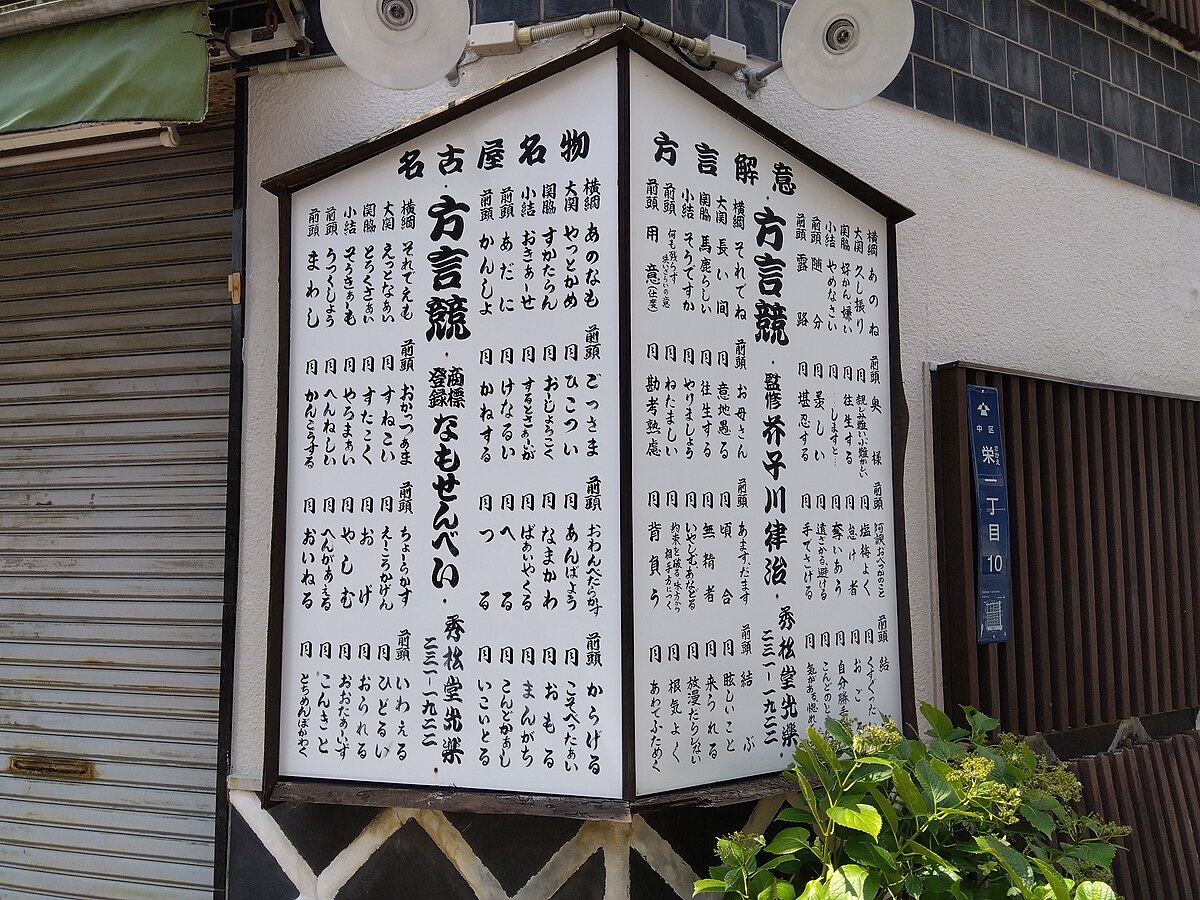 名古屋名物
横綱 あのなも
大関 やっとかめ
関脇 すかたらん
小結 おきぁーせ
前頭 あだに
前頭 かんしょ
前頭 ごっさま
同 ひこつい
同 おーじょうこく
同 するとさぁーが
同 けなるい
同 かねする
前頭 おわんべだらかす
同 あんばよう
同 なまかわ
同 ばあいやくる
同 へる
同 つる
前頭 からげる
同 こそべったぁい
同 おもる
同 まんがち
同 こんどかぁし
同 いこいとる
方言競
商標登録 なもせんべい
秀松堂光楽
二三一-一九二二
横綱 それでえも
大関 えっとなぁい
関脇 とろくさぁい
小結 そうきぁーも
前頭 うつくしょう
前頭 まわし
前頭 おかっつぁま
同 すねこい
同 すたこく
同 やろまぁい
同 へんねしい
同 かんこうする
前頭 ちょーらかす
同 えーころかげん
同 おげ
同 やしむ
同 へんがぁえる
同 おいねる
前頭 いわえる
同 ひどるい
同 おられる
同 おおだぁーいず
同 こんきと
同 とちめんぼかわく
方言解意
横綱 あのね
大関 久し振り
関脇 好かん嫌い
小結 やめなさい
前頭 随分
前頭 露路
前頭 奥様
同 親しみ難い小難かしい
同 往生する
同 …しますと…
同 羨しい
同 堪忍する
前頭 河倹おべつかのこと
同 塩梅よく
同 怠け者
同 奪いあう
同 遠さかる、避ける
同 手でさげる
前頭 結
同 くすぐった
同 おご
同 自分勝手
同 こんどのと
同 気がある、惚れ
方言競
監修 芥子川律治
秀松堂光楽
二三一-一九二二
横綱 それでね
大関 長い間
関脇 馬鹿らしい
小結 そうですか
前頭 何も残らず
前頭 用意(仕度)
前頭 お母さん
同 意地悪る
同 往生する
同 やりましょう
同 ねたましい
同 勘考熟慮
前頭 あます、だます
同 頃合
同 無精者
同 いやしむ、あなどる
同 約束を破る、味方から相手方につく
同 背負う
前頭 結ぶ
同 眩しいこと
同 来られる
同 放漫だらしない
同 根気よく
同 あわてふためく
中区
栄
さかえ
一丁目
10